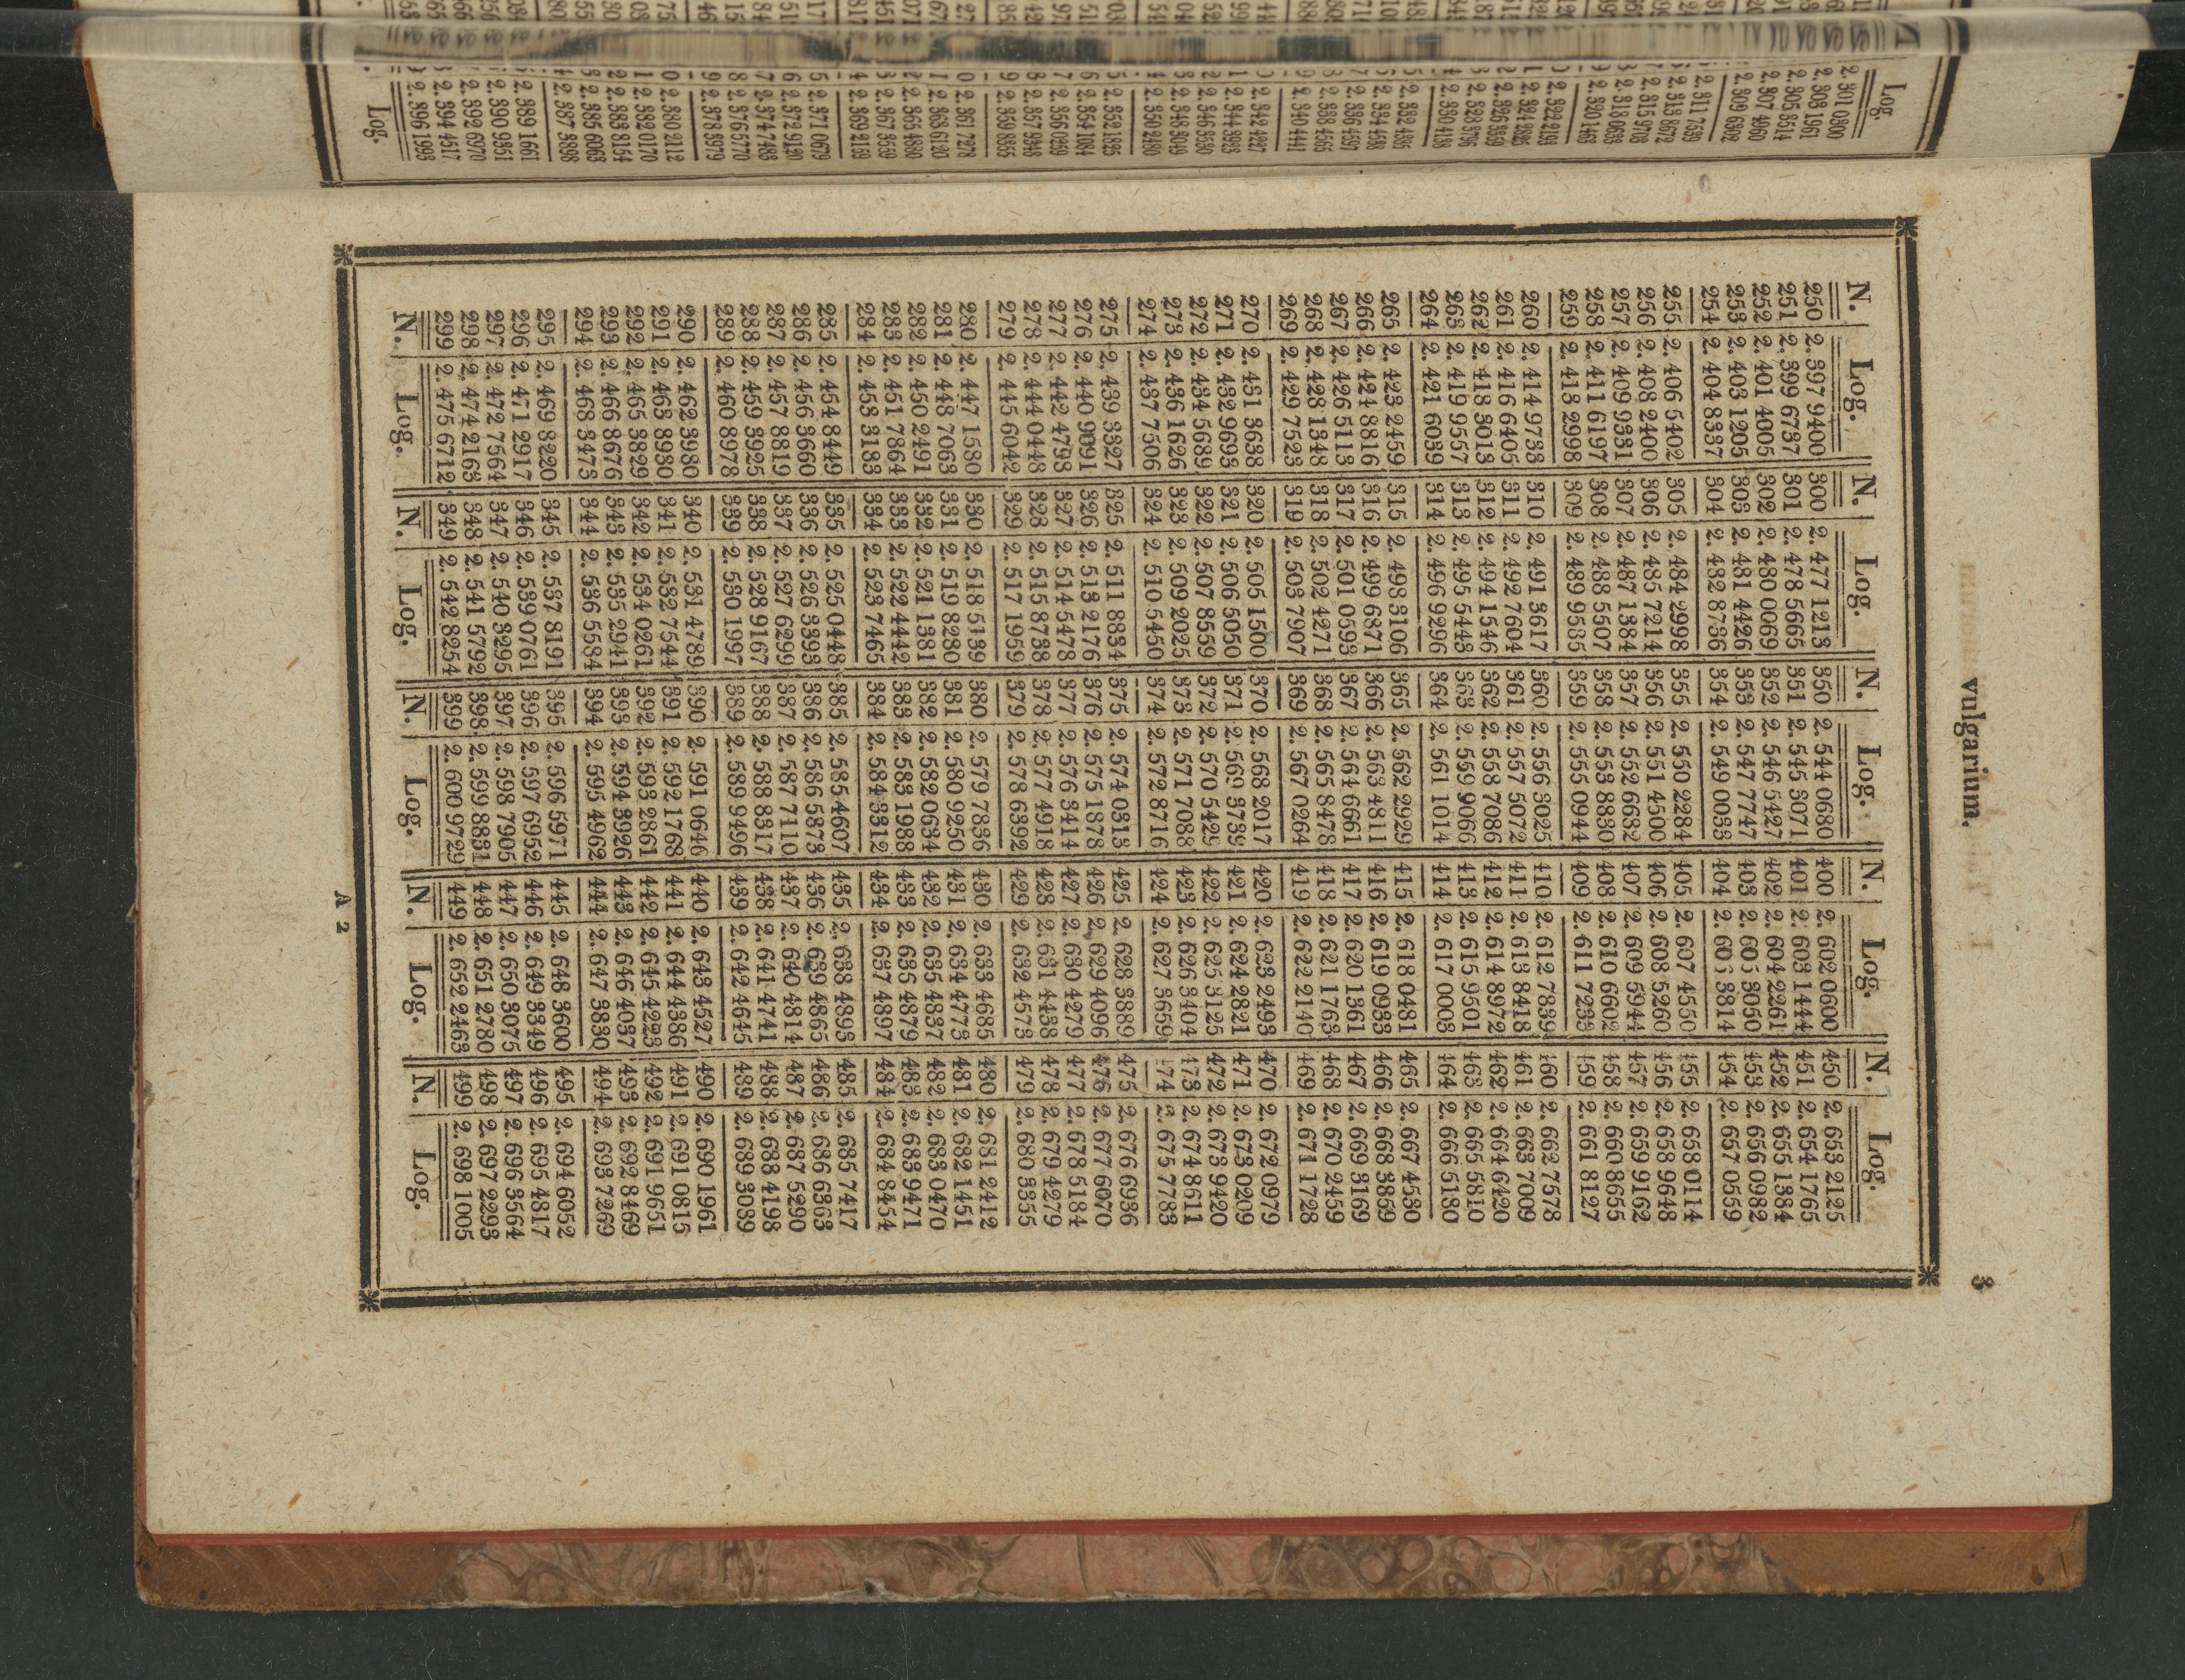 Log.
2. 301 0300
2. 303 1961
2. 305 3514
2. 307 4960
2. 309 6302
2. 311 7539
2. 313 8672
2. 315 9703
2. 318 0633
2. 320 1463
2. 322 2193
2. 324 2825
2. 326 3359
2. 328 3796
2. 330 4138
2. 332 4385
2. 334 4538
2. 336 4597
2. 338 4565
2. 340 4441
2. 342 4227
2. 344 3923
2. 346 3530
2. 348 3049
2. 350 2480
2. 352 1825
2. 354 1084
2. 356 0259
2. 357 9348
2. 359 8355
2. 361 7278
2. 363 6120
2. 365 4880
2. 367 3559
2. 369 2159
2. 371 0679
2. 372 9120
2. 374 7483
2. 376 5770
2. 378 3979
2. 380 2112
2. 382 0170
2. 383 8154
2. 385 6063
2. 387 3898
2. 389 1661
2. 390 9351
2. 392 6970
2. 394 4517
2. 396 1993
Log.
vulgarium. 3
N. Log. N. Log. N. Log. N. Log. N. Log.
250 2. 397 9400 300 2. 477 1213 350 2. 544 0680 400 2. 602 0600 450 2. 653 2125
251 2. 399 6737 301 2. 478 5665 351 2. 545 3071 401 2. 603 1444 451 2. 654 1765
252 2. 401 4005 302 2. 480 0069 352 2. 546 5427 402 2. 604 2261 452 2. 655 1384
253 2. 403 1205 303 2. 481 4426 353 2. 547 7747 403 2. 605 3050 453 2. 656 0982
254 2. 404 8337 304 2. 482 8736 354 2. 549 0033 404 2. 606 3814 454 2. 657 0559
255 2. 406 5402 305 2. 484 2998 355 2. 550 2284 405 2. 607 4550 455 2. 658 0114
256 2. 408 2400 306 2. 485 7214 356 2. 551 4500 406 2. 608 5260 456 2. 658 9648
257 2. 409 9331 307 2. 487 1384 357 2. 552 6632 407 2. 609 5944 457 2. 659 9162
258 2. 411 6197 308 2. 488 5507 358 2. 553 8830 408 2. 610 6602 458 2. 660 8655
259 2. 413 2998 309 2. 489 9585 359 2. 555 0944 409 2. 611 7233 459 2. 661 8127
260 2. 414 9733 310 2. 491 3617 360 2. 556 3025 410 2. 612 7839 460 2. 662 7578
261 2. 416 6405 311 2. 492 7604 361 2. 557 5072 411 2. 613 8418 461 2. 663 7009
262 2. 418 3013 312 2. 494 1546 362 2. 558 7086 412 2. 614 8972 462 2. 664 6420
263 2. 419 9557 313 2. 495 5443 363 2. 559 9066 413 2. 615 9501 463 2. 665 5810
264 2. 421 6039 314 2. 496 9296 364 2. 561 1014 414 2. 617 0003 464 2. 666 5180
265 2. 423 2459 315 2. 498 3106 365 2. 562 2929 415 2. 618 0481 465 2. 667 4530
266 2. 424 8816 316 2. 499 6871 366 2. 563 4811 416 2. 619 0933 466 2. 668 3859
267 2. 426 5113 317 2. 501 0593 367 2. 564 6661 417 2. 620 1361 467 2. 669 3169
268 2. 428 1348 318 2. 502 4271 368 2. 565 8478 418 2. 621 1763 468 2. 670 2459
269 2. 429 7523 319 2. 503 7907 369 2. 567 0264 419 2. 622 2140 469 2. 671 1728
270 2. 431 3638 320 2. 505 1500 370 2. 568 2017 420 2. 623 2493 470 2. 672 0979
271 2. 432 9693 321 2. 506 5050 371 2. 569 3739 421 2. 624 2821 471 2. 673 0209
272 2. 434 5689 322 2. 507 8559 372 2. 570 5429 422 2. 625 3125 472 2. 673 9420
273 2. 436 1626 323 2. 509 2025 373 2. 571 7088 423 2. 626 3404 473 2. 674 8611
274 2. 437 7506 324 2. 510 5450 374 2. 572 8716 424 2. 627 3659 474 2. 675 7783
275 2. 439 3327 325 2. 511 8834 375 2. 574 0313 425 2. 628 3889 475 2. 676 6936
276 2. 440 9091 326 2. 513 2176 376 2. 575 1878 426 2. 629 4096 476 2. 677 6070
277 2. 442 4798 327 2. 514 5478 377 2. 576 3414 427 2. 630 4279 477 2. 678 5184
278 2. 444 0448 328 2. 515 8738 378 2. 577 4918 428 2. 631 4438 478 2. 679 4279
279 2. 445 6042 329 2. 517 1959 379 2. 578 6392 429 2. 632 4573 479 2. 680 3355
280 2. 447 1580 330 2. 518 5139 380 2. 579 7836 430 2. 633 4685 480 2. 681 2412
281 2. 448 7063 331 2. 519 8280 381 2. 580 9250 431 2. 634 4773 481 2. 682 1451
282 2. 450 2491 332 2. 521 1381 382 2. 582 0634 432 2. 635 4837 482 2. 683 0470
283 2. 451 7864 333 2. 522 4442 383 2. 583 1988 433 2. 636 4879 483 2. 683 9471
284 2. 453 3183 334 2. 523 7465 384 2. 584 3312 434 2. 637 4897 484 2. 684 8454
285 2. 454 8449 335 2. 525 0448 385 2. 585 4607 435 2. 638 4893 485 2. 685 7417
286 2. 456 3660 336 2. 526 3393 386 2. 586 5873 436 2. 639 4865 486 2. 686 6363
287 2. 457 8819 337 2. 527 6299 387 2. 587 7110 437 2. 640 4814 487 2. 687 5290
288 2. 459 3925 338 2. 528 9167 388 2. 588 8317 438 2. 641 4741 488 2. 688 4198
289 2. 460 8978 339 2. 530 1997 389 2. 589 9496 439 2. 642 4645 489 2. 689 3089
290 2. 462 3980 340 2. 531 4789 390 2. 591 0646 440 2. 643 4527 490 2. 690 1961
291 2. 463 8930 341 2. 532 7544 391 2. 592 1768 441 2. 644 4386 491 2. 691 0815
292 2. 465 3829 342 2. 534 0261 392 2. 593 2861 442 2. 645 4223 492 2. 691 9651
293 2. 466 8676 343 2. 535 2941 393 2. 594 3926 443 2. 646 4037 493 2. 692 8469
294 2. 468 3473 344 2. 536 5584 394 2. 595 4962 444 2. 647 3830 494 2. 693 7269
295 2. 469 8220 345 2. 537 8191 395 2. 596 5971 445 2. 648 3600 495 2. 694 6052
296 2. 471 2917 346 2. 539 0761 396 2. 597 6952 446 2. 649 3349 496 2. 695 4817
297 2. 472 7564 347 2. 540 3295 397 2. 598 7905 447 2. 650 3075 497 2. 696 3564
298 2. 474 2163 348 2. 541 5792 398 2. 599 8831 448 2. 651 2780 498 2. 697 2293
299 2. 475 6712 349 2. 542 8254 399 2. 600 9729 449 2. 652 2463 499 2. 698 1005
N. Log. N. Log. N. Log. N. Log. N. Log.
A 2